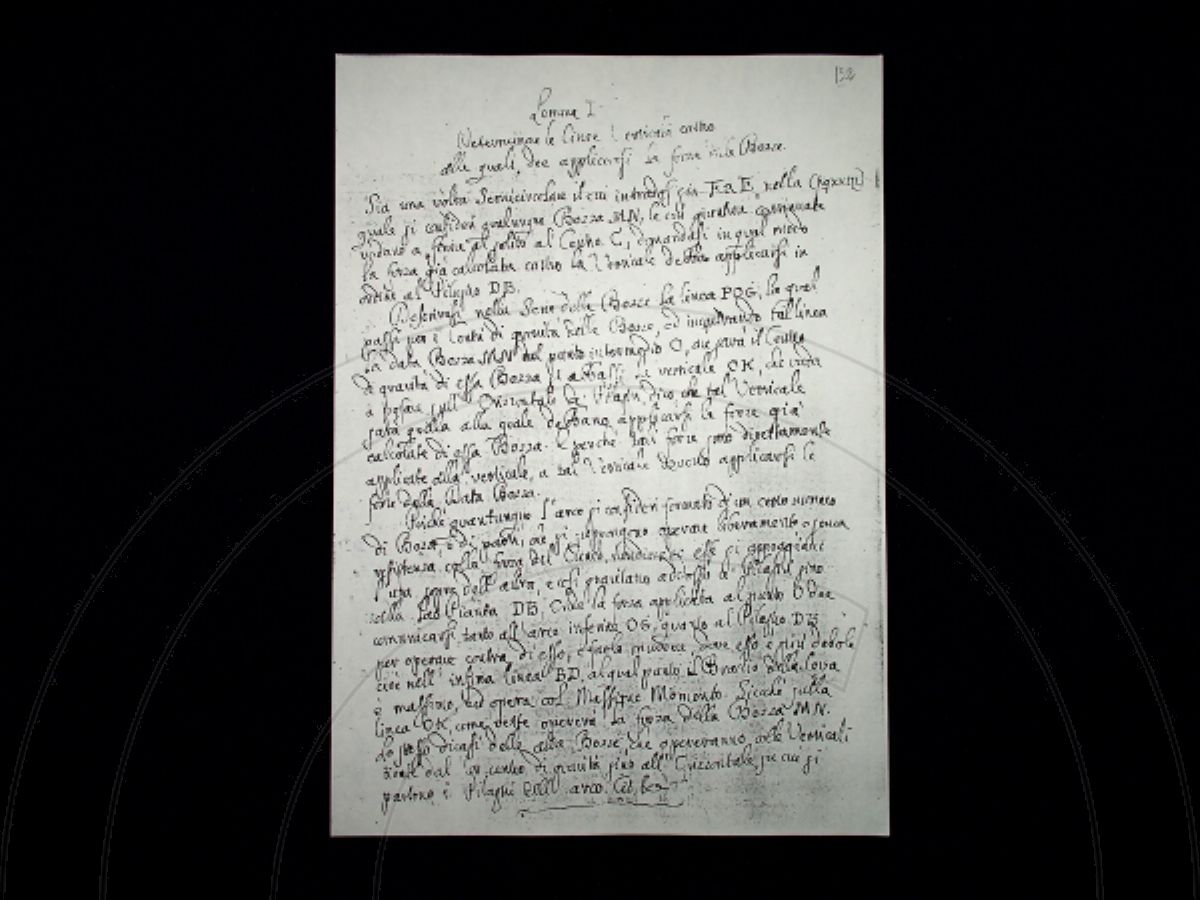 132
Lemma I
Determinare le linee Verticali contro
alle quali dee applicarsi la forza delle Bozze.
Sia una volta Semicircolare il cui intrados sia FaE, nella (fig XXIII)
quale si consideri qualunque Bozza MN, le cui giunture continuate
vadano a ferire al solito al Centro C, domandasi in qual modo
la forza già calcolata contro la Verticale debba applicarsi in
ordine al Pilastro DB.
Descrivasi nella Serie delle Bozze la linea POG, la qual
passi per i Centri di gravità delle Bozze, ed incontrando tal linea
la data Bozza MN nel punto intermedio O, che sarà il Centro
di gravità di essa Bozza si abbassi la verticale OK, che vada
a posare sull' Orizontale de' Pilastri, dico che tal Verticale
sarà quella alla quale debbano applicarsi le forze già
calcolate di essa Bozza. E perchè tali forze sono direttamente
applicate alla verticale, a tal Verticale devono applicarsi le
forze della data Bozza.
Poichè quantunque l'arco si consideri formato di un certo numero
di Bozze, e di parti, che si suppongono operare liberamente o senza
resistenza colla forza del Cuneo, nondimeno esse si appoggiano
l'una sopra dell'altra, e così gravitano addosso a' Pilastri sino
alla sua Pianta DB. Onde la forza applicata al punto O dee
comunicarsi tanto all'arco inferiore OG, quanto al Pilastro DB
per operare contra di esso, e farlo muovere dove esso è più debole
cioè nell' infima linea BD, al qual punto il Braccio della Leva
è massimo, ed opera col Massimo Momento. Sicchè sulla
linea OK, come dissi opererà la forza della Bozza MN.
lo stesso dicasi delle altre Bozze, che opereranno colle Verticali
tirate dal lor centro di gravità sino all' Orizontale, su cui si
partono i Pilastri dell' arco.